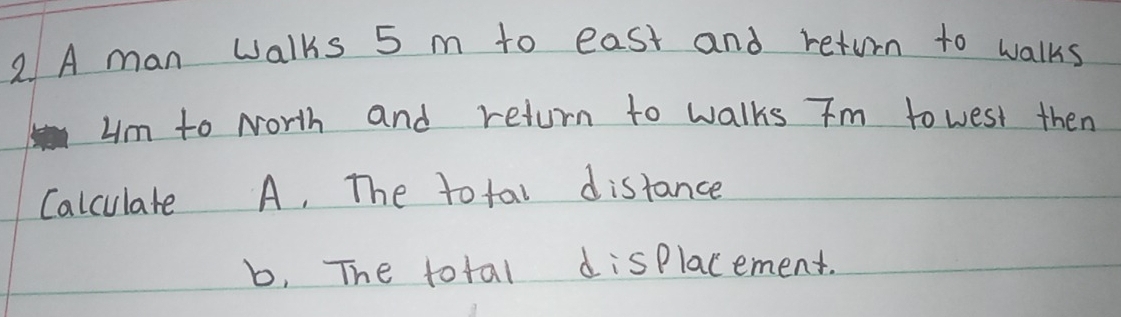 2. A man walks 5 m to east and return to walks
4m to North and return to walks 7m to west then
Calculate A. The total distance
b. The total displacement.